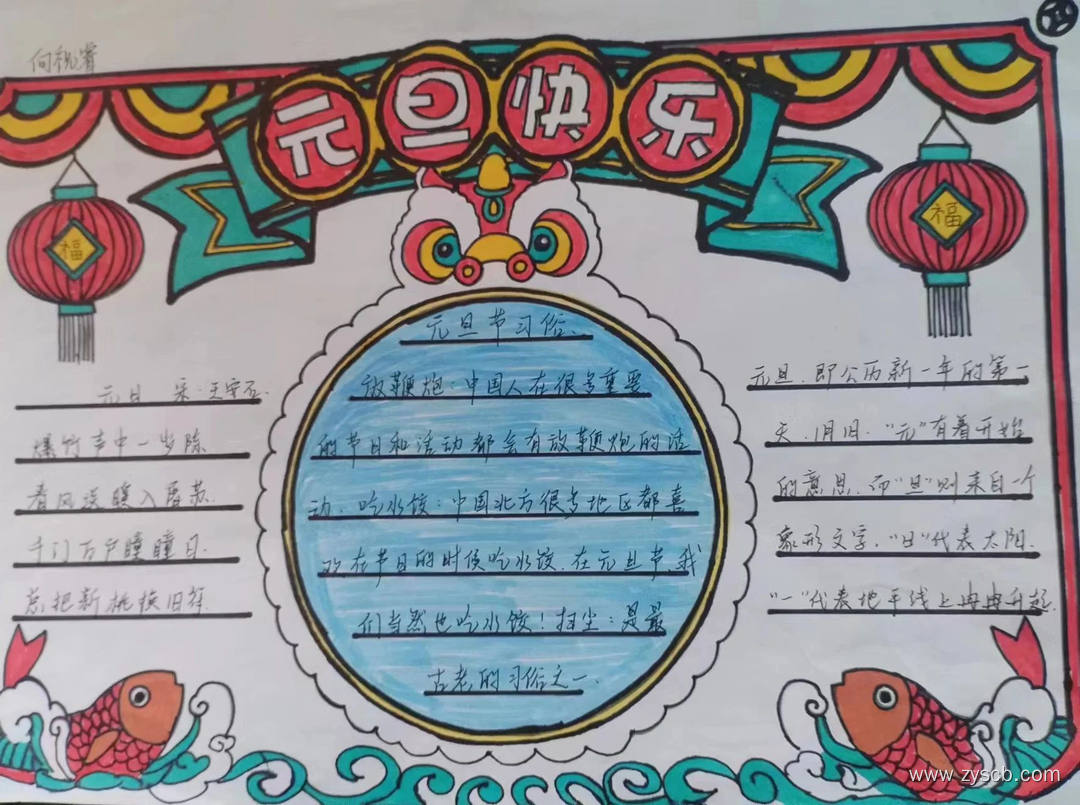 向祝睿
元旦快乐
福
福
元旦节习俗.
放鞭炮:中国人在很多重要
的节日和活动都会有放鞭炮的活
动.吃水饺:中国北方很多地区都喜
欢在节日的时候吃水饺.在元旦节,我
们当然也吃水饺!扫尘:是最
古老的习俗之一.
元日 宋:王安石.
爆竹声中一岁除
春风送暖入屠苏.
千门万户瞳瞳日.
总把新桃换旧符.
元旦,即公历新一年的第一
天,1月1日."元"有着开始
的意思,而"旦"则来自一个
象形文字,"日"代表太阳.
"一"代表地平线上冉冉升起.
www.zyscb.com